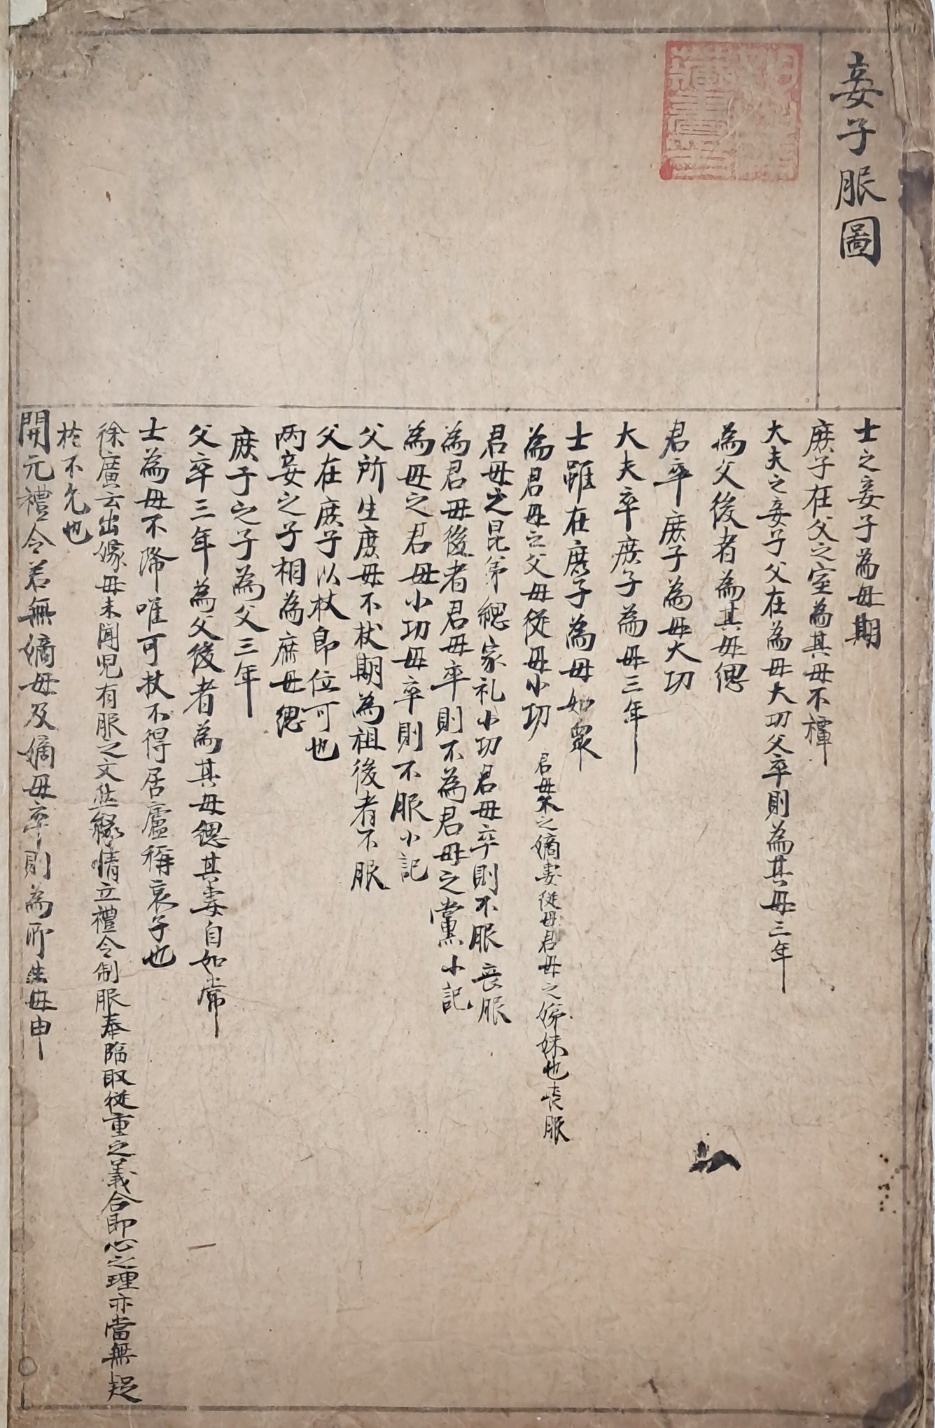 妾子服圖
士之妾子為母期
庶子在父之室為其母不禫
大夫之妾子父在為母大功父卒則為其母三年
為父後者為其母緦
君卒庶子為母大功
大夫卒庶子為母三年
士雖在庶子為母如衆
為君母之父母從母小功 君母父之嫡妻從母君母之姊妹也喪服
君母之昆弟緦家礼小功君母卒則不服喪服
為君母後者君母卒則不為君母之黨小記
為母之君母小功母卒則不服小記
父所生庶母不杖期為祖後者不服
父在庶子以杖即位可也
两妾之子相為庶母緦
庶子之子為父三年
父卒三年為父後者為其母緦其妻自如常
士為母不降唯可杖不得居廬稱哀子也
徐廣云出嫁母未聞児有服之文然緣情立禮令制服奉臨取從重之義合即心之理亦當無疑
於不允也
開元禮令若無嫡母及嫡母卒則為所生母申